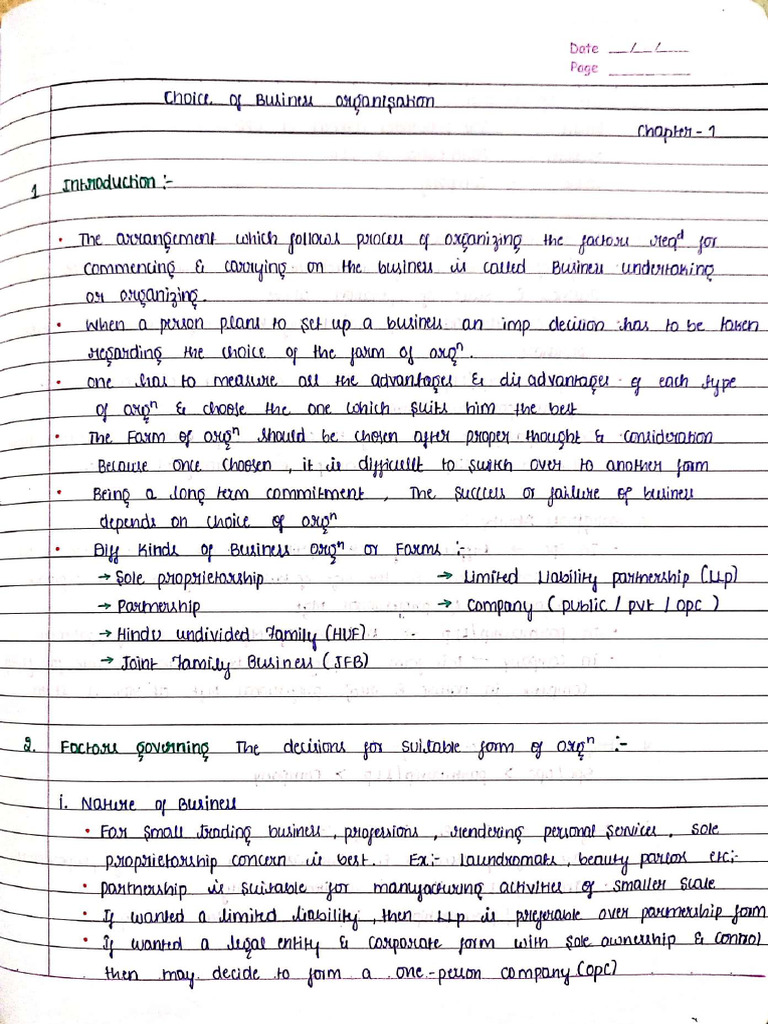 Date __/__/____
Page ________
Choice of Business organisation
Chapter - 1
1 Introduction :-
• The arrangement which follows process of organizing the factors reqd for
commencing & carrying on the business is called Business undertaking
or organizing.
• When a person plans to set up a business an imp decision has to be taken
regarding the choice of the form of orgn.
• one has to measure all the advantages & disadvantages of each type
of orgn & choose the one which suits him the best
• The Form of orgn should be chosen after proper thought & consideration
Because once choosen , it is difficult to switch over to another form
• Being a long term commitment , The success or failure of business
depends on choice of orgn
• Diff Kinds of Business orgn or Forms :-
→ Sole proprietorship → Limited Liability partnership (LLp)
→ Partnership → Company ( public / pvt / opc )
→ Hindu undivided Family (HUF)
→ Joint Family Business (JFB)
2. Factors governing The decisions for suitable form of orgn :-
i. Nature of Business
• For small trading business , professions , rendering personal services , sole
proprietorship concern is best. Ex:- laundromats , beauty parlor etc;-
• partnership is suitable for manufacturing activities of smaller scale
• If wanted a limited liability , then LLp is preferable over partnership form
• If wanted a legal entity & corporate form with sole ownership & control
then may decide to form a one-person company (opc)